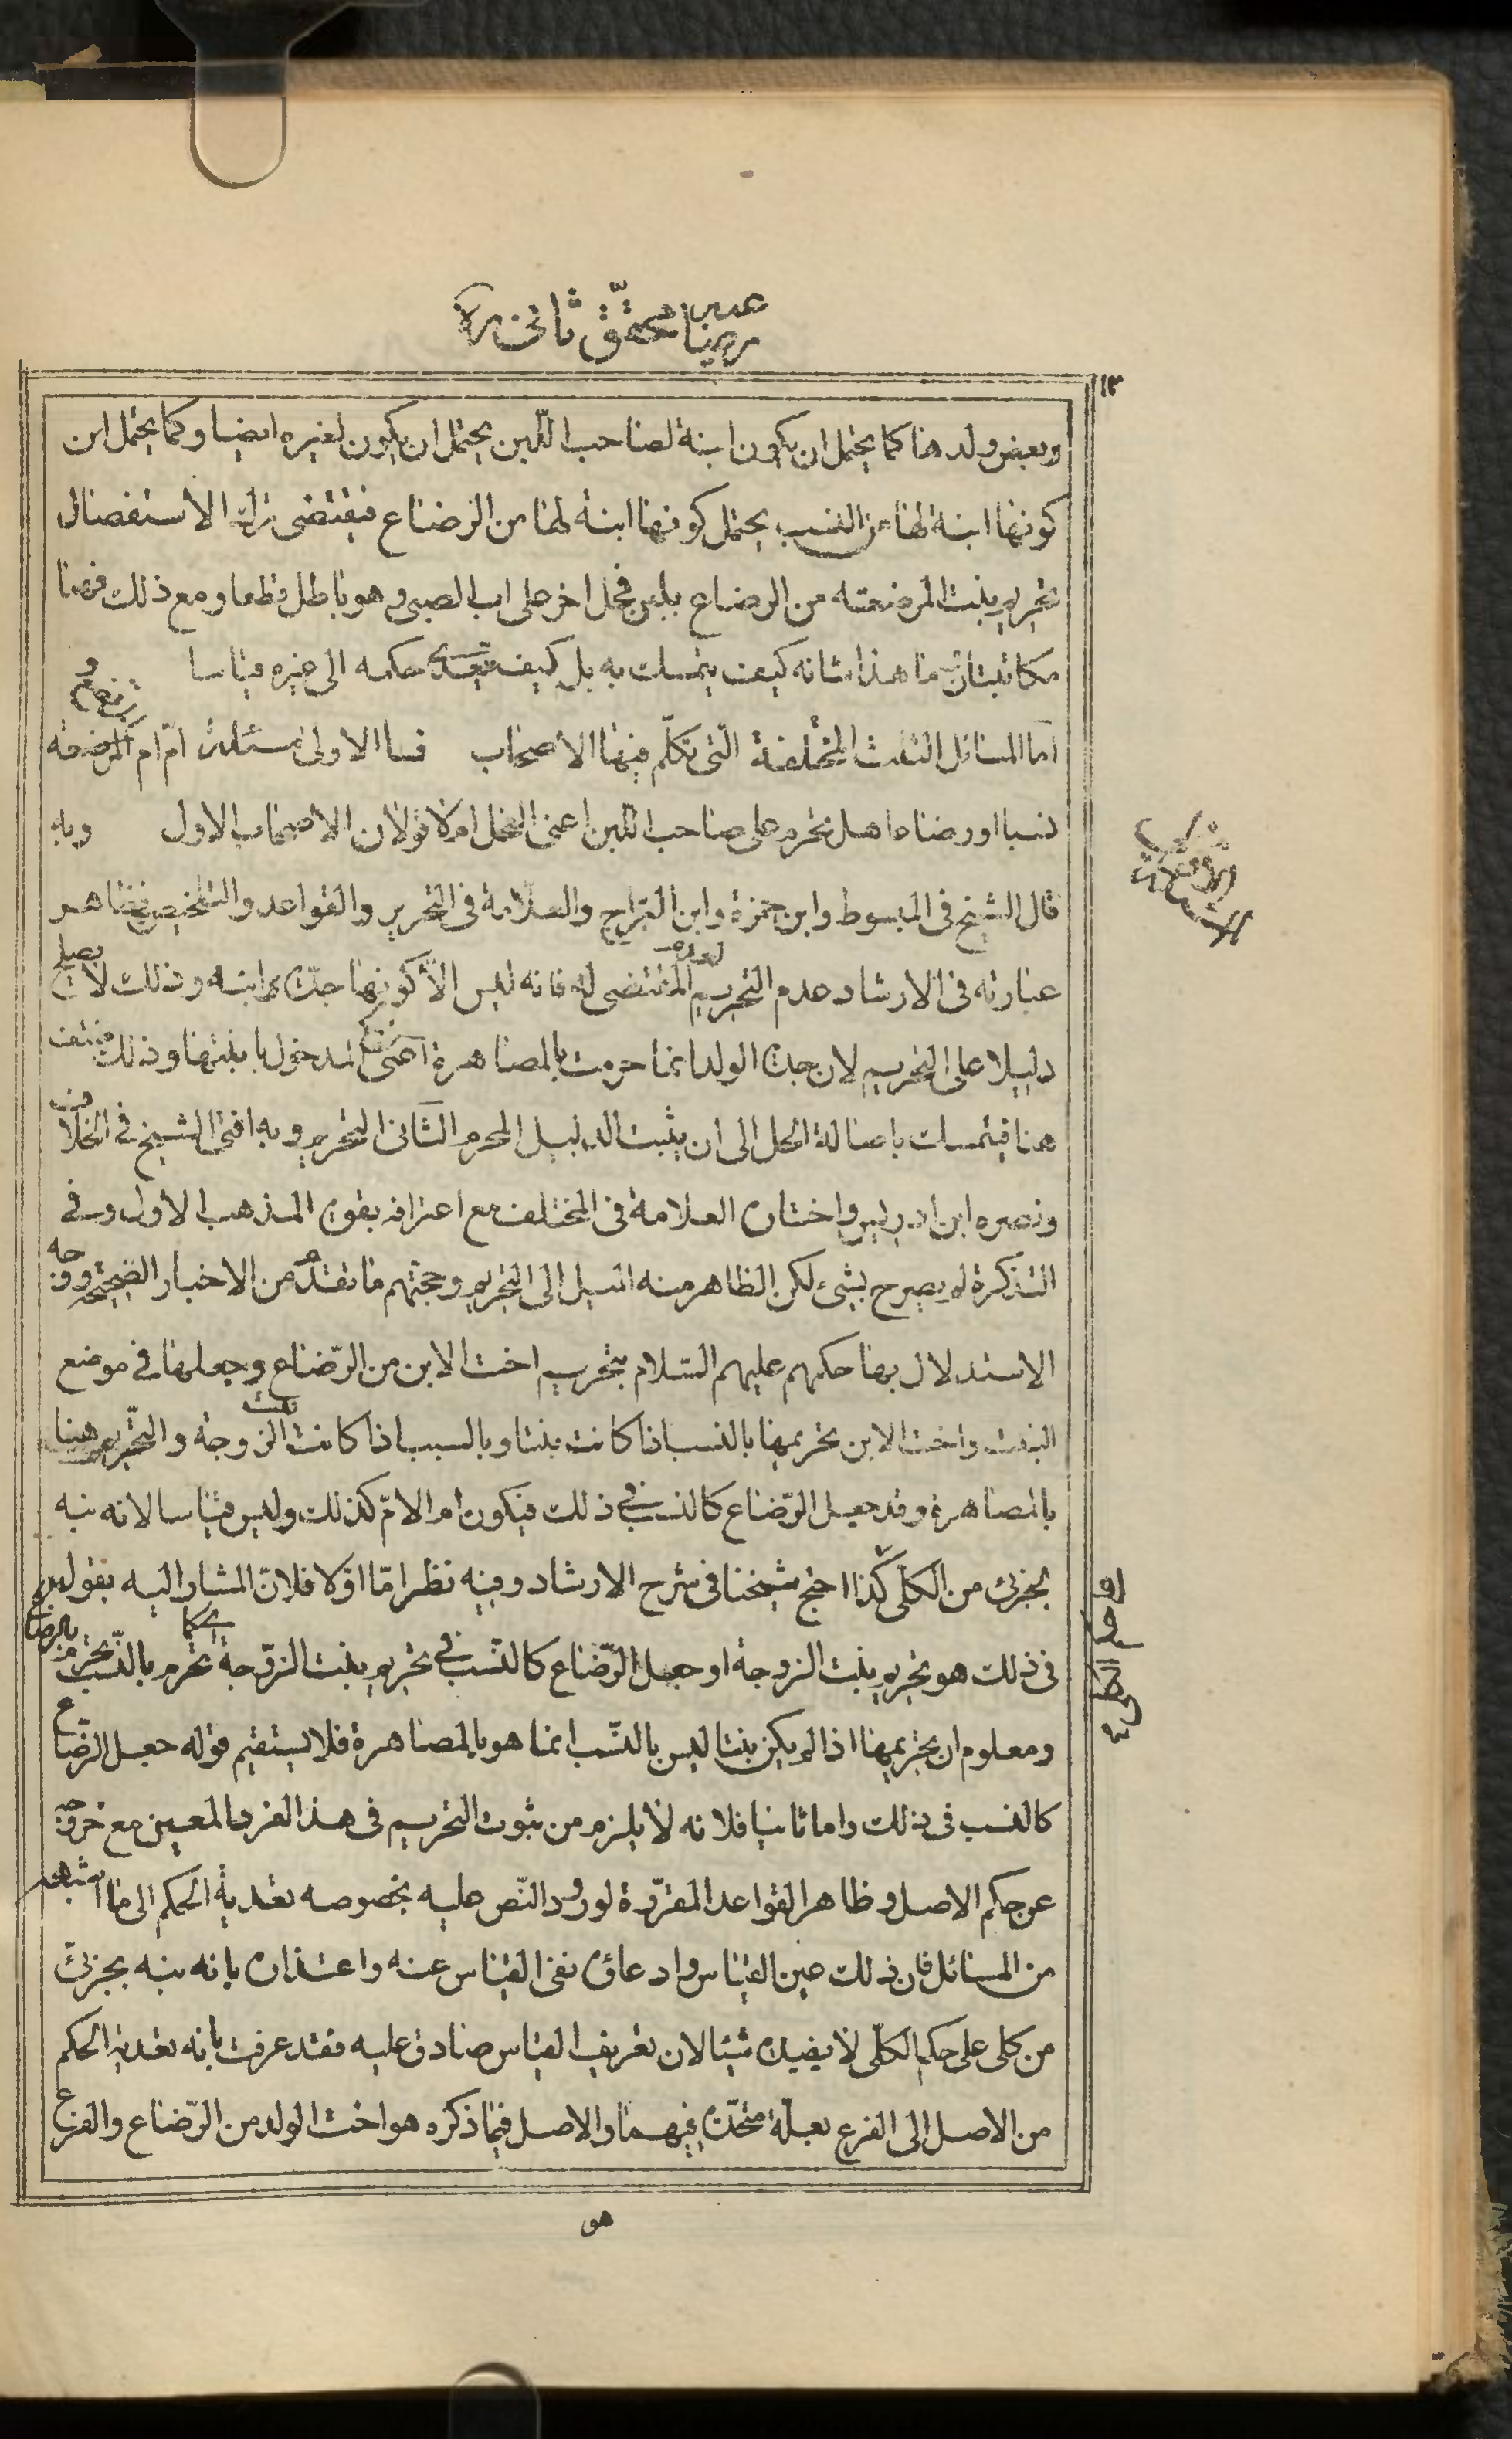 رضاعيه محقّق ثانى ره
١٣
وبعض ولدها كما يحتمل ان يكون ابنة لصاحب اللّبن يحتمل ان يكون لغيره ايضا وكما يحتمل ان
كونها ابنة لها من النسب يحتمل كونها ابنة لها من الرضاع فيقتضى ترك الاستفصال
تحريم بنت المرضعته من الرضاع بلبن فحل اخر على اب الصبى وهو باطل قطعا ومع ذلك فهما
مكاتبتان وما هذا شانه كيف يتمسك به بل كيف يتعدى حكمه الى غيره قياسا
اما المسائل الثلث المختلفة الّتى تكلّم فيها الاصحاب فالاولى مسئلة امّ امّ المرتضع
نسبا او رضاعا هل تحرم على صاحب اللبن اعنى الفحل ام لا قولان للاصحاب الاول وبه
قال الشيخ فى المبسوط وابن حمزة وابن البرّاج والعلّامة فى التحرير والقواعد والتلخيص وظاهر
عبارته فى الارشاد عدم التحريم لعدم المقتضى له فانه ليس الّا كونها جدّة ابنه وذلك لا يصلح
دليلا على التحريم لان جدة الولد انما حرمت بالمصاهرة اعنى نكح المدخول بابنتها وذلك منتف
هنا فيتمسك باصالة الحل الى ان يثبت الدليل المحرم الثّانى التحريم وبه افتى الشيخ فى الخلاف
ونصره ابن ادريس واختاره العلامة فى المختلف مع اعترافه بقوة المذهب الاول وفى
التذكرة لم يصرح بشئ لكن الظاهر منه الميل الى التحريم وحجتهم ما تقدم من الاخبار الصحيحة ووجه
الاستدلال بها حكمهم عليهم السّلام بتحريم اخت الابن من الرّضاع وجعلها فى موضع
البنت واخت الابن تحريمها بالنسب اذا كانت بنتا وبالسبب اذا كانت بنت الزوجة والتّحريم هنا
بالمصاهرة وقد جعل الرّضاع كالنسب فى ذلك فيكون امّ الامّ كذلك وليس قياسا لانه نبه
بجزئى من الكلّى كذا احتج شيخنا فى شرح الارشاد وفيه نظر امّا اوّلا فلانّ المشار اليه بقوله
فى ذلك هو تحريم بنت الزوجة او جعل الرّضاع كالنّسب فى تحريم بنت الزّوجة اى كما تحرم بالنّسب تحرم بالرضاع
ومعلوم ان تحريمها اذا لم يكن بنتا ليس بالنّسب انما هو بالمصاهرة فلا يستقيم قوله جعل الرّضاع
كالنسب فى ذلك واما ثانيا فلانه لا يلزم من ثبوت التحريم فى هذا الفرد المعين مع خروجه
عن حكم الاصل وظاهر القواعد المقرّرة لورود النّص عليه بخصوصه تعدية الحكم الى ما اشبهه
من المسائل فان ذلك عين القياس وادعاؤه نفى القياس عنه واعتذاره بانه نبه بجزئىّ
من كلى على حكم الكلّى لا يفيده شيئا لان تعريف القياس صادق عليه فقد عرفت بانه تعدية الحكم
من الاصل الى الفرع بعلّة متحدّة فيهما والاصل فيما ذكره هو اخت الولد من الرّضاع والفرع
هو